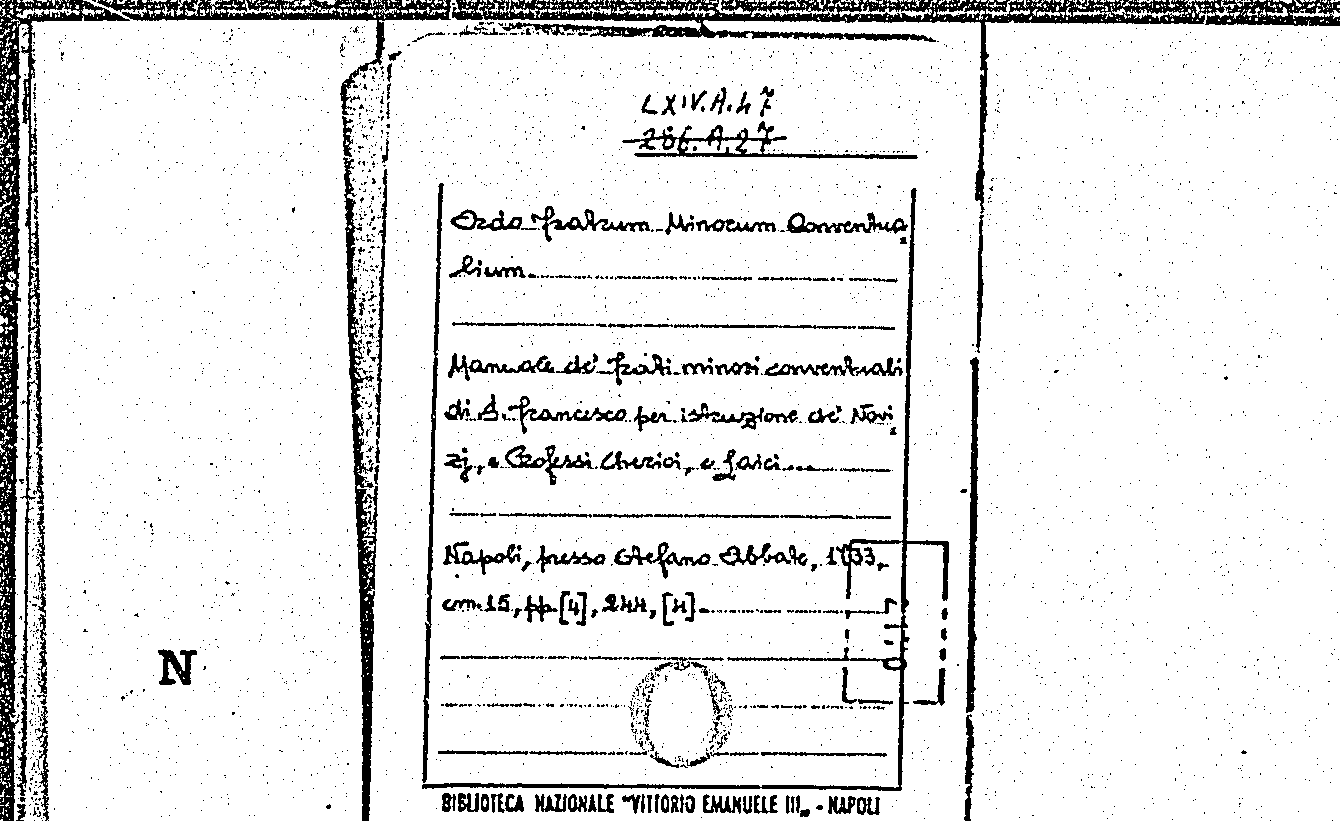 LXIV.A.47
286.A.27
Ordo Fratrum Minorum Conventua
lium.
Manuale de' frati minori conventuali
di S. Francesco per istruzione de' Novi
zj, e Professi Chierici, e Laici...
Napoli, presso Stefano Abbate, 1733,
cm.15, pp.[4], 244, [4].
N
BIBLIOTECA NAZIONALE "VITTORIO EMANUELE III„ - NAPOLI